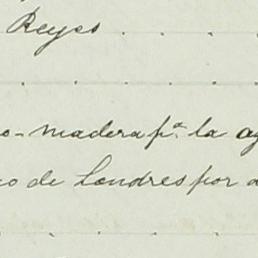 Reyes
madera pª la
de Londres por